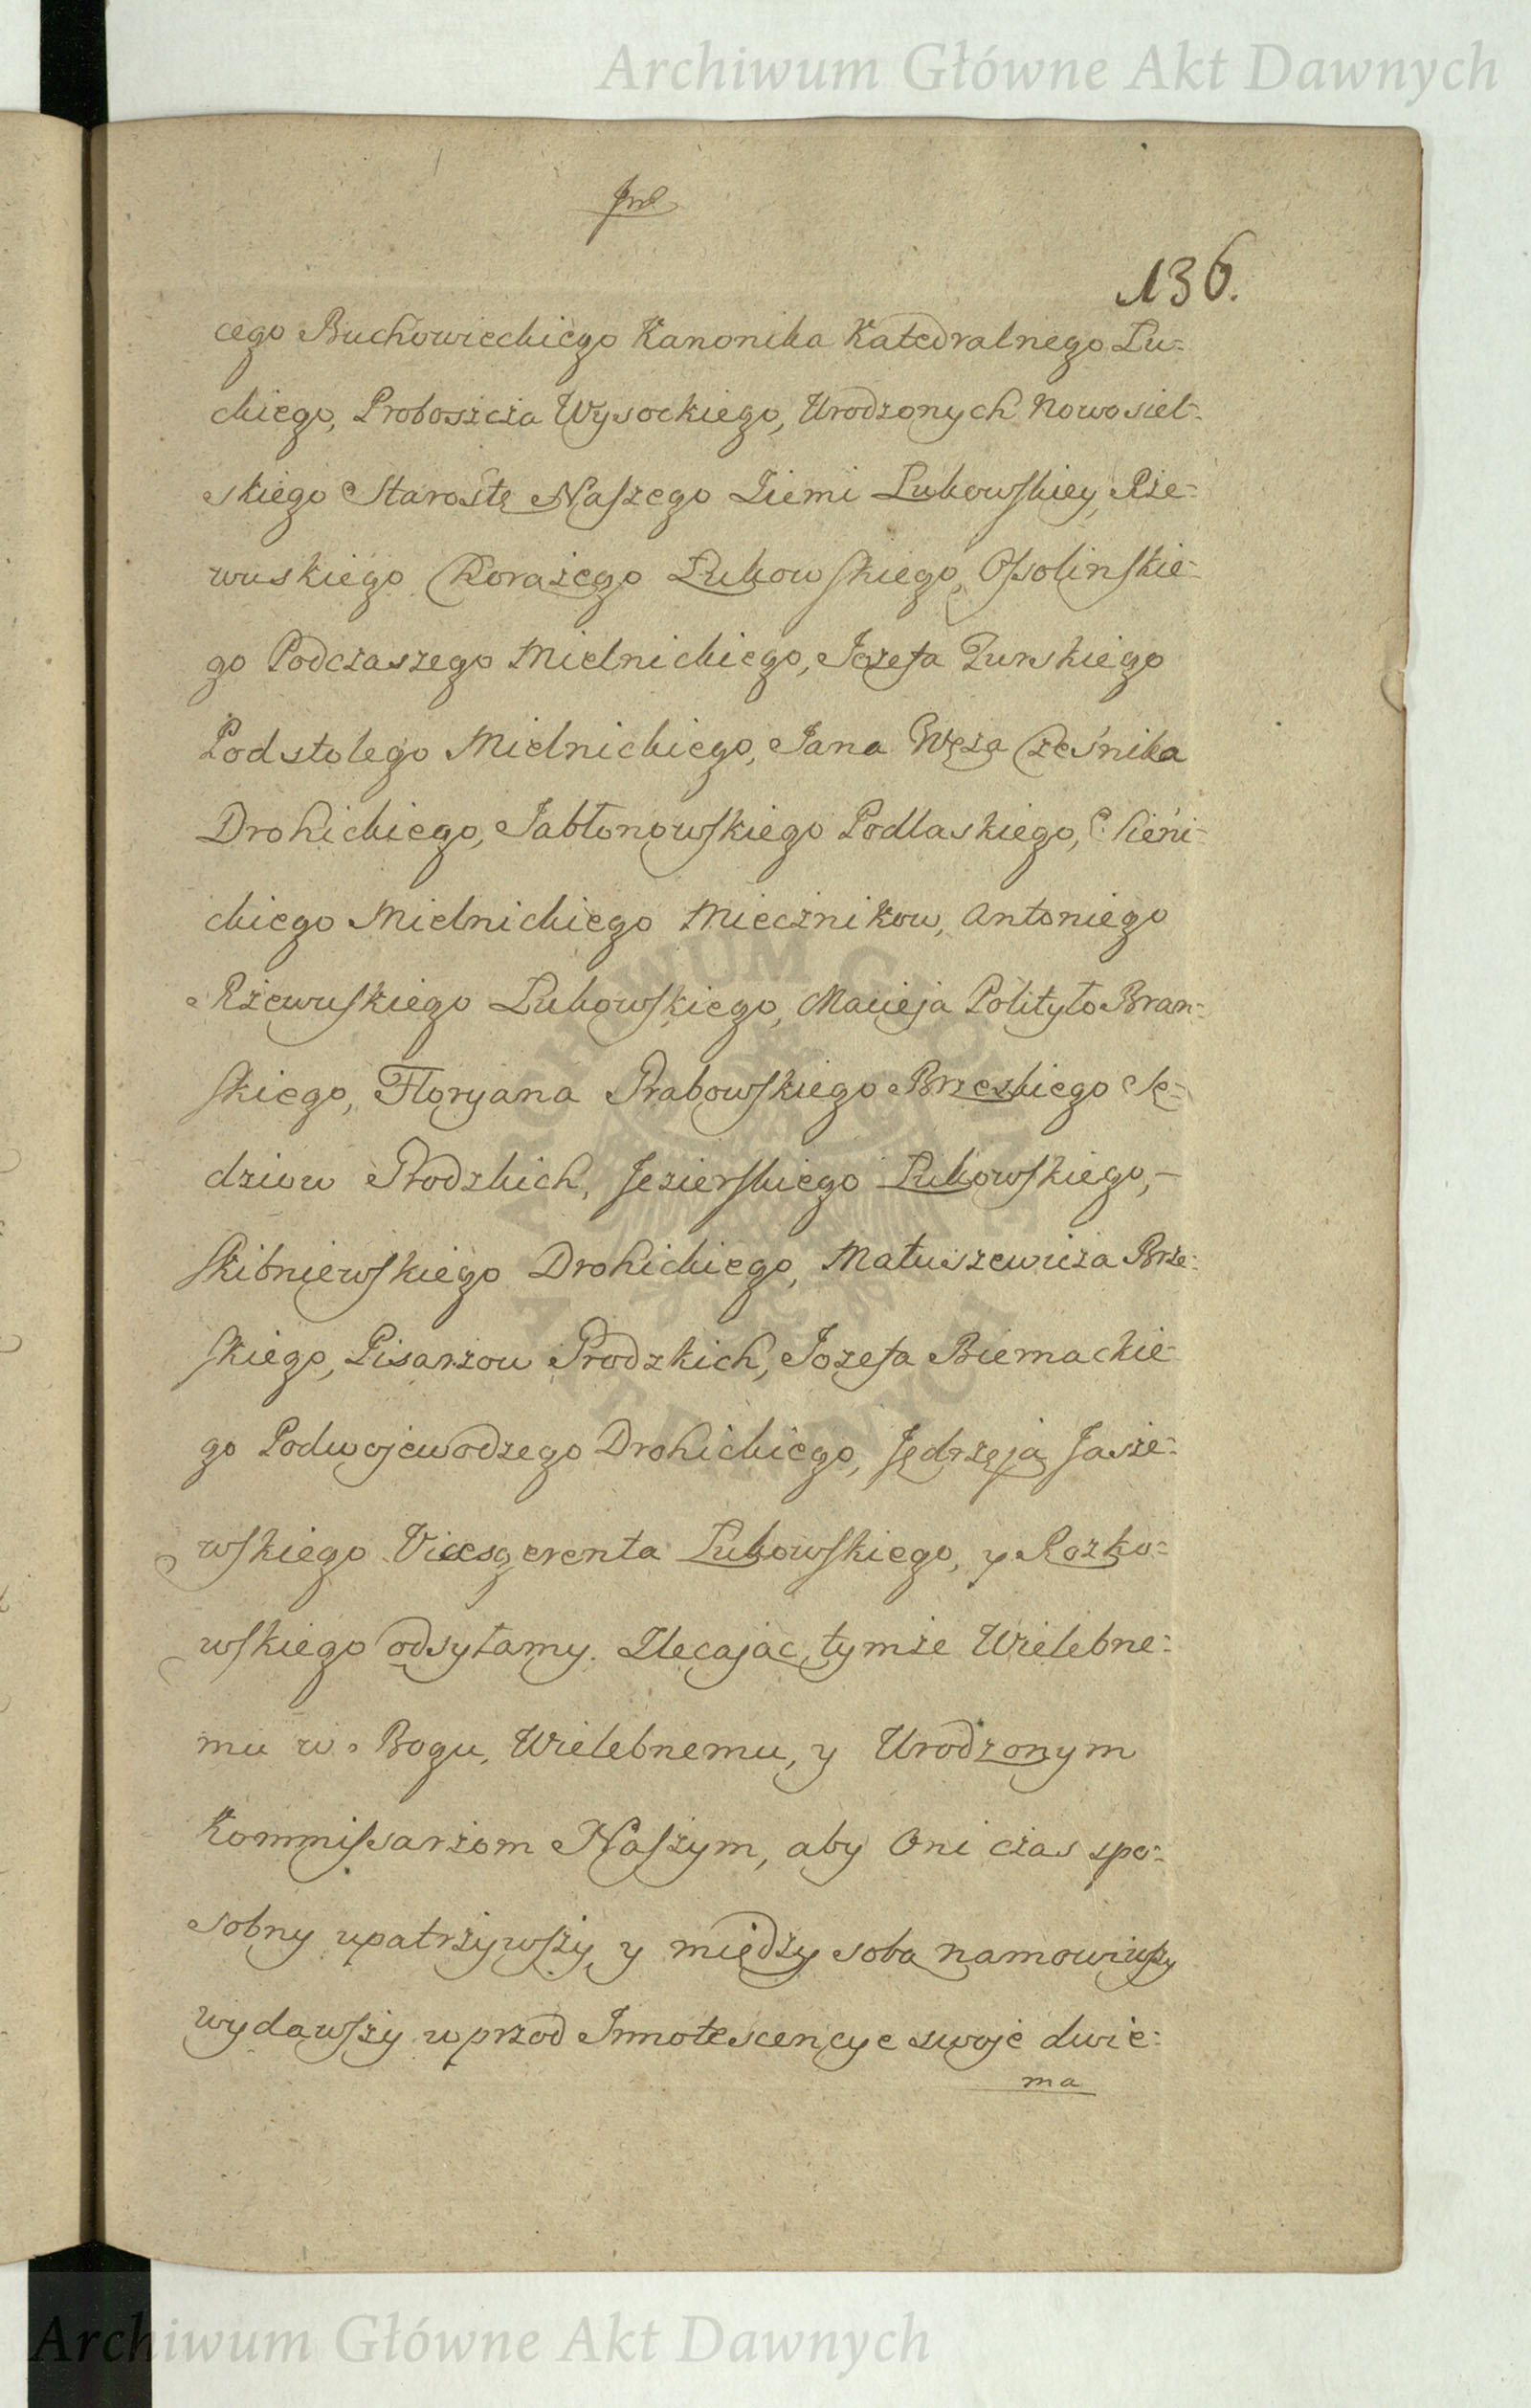 Archiwum Główne Akt Dawnych
136.
cego Buchowieckiego Kanonika Katedralnego Lu=
ckiego, Proboszcza Wysockiego, Urodzonych Nowosiel=
skiego Starostę Naszego Ziemi Łukowskiey, Rze=
wuskiego Chorążego Łukowskiego, Ossolinskie=
go Podczaszego Mielnickiego, Jozefa Turskiego
Podstolego Mielnickiego, Jana Węża Cześnika
Drohickiego, Jabłonowskiego Podlaskiego,
ckiego Mielnickiego Miecznikow, Antoniego
Rzewuskiego Łukowskiego, Macieja Polityło Bran=
skiego, Floryana Grabowskiego Brzeskiego Sę=
dziow Grodzkich, Jezierskiego Łukowskiego,
Skibniewskiego Drohickiego, Matuszewicza Brze=
skiego, Pisarzow Grodzkich, Jozefa Biernackie
go Podwojewodzego Drohickiego, Jędrzeja Jasze=
wskiego Vicesgerenta Łukowskiego, y Rozko=
wskiego odsyłamy. Zlecając tymże Wielebne=
mu w Bogu, Wielebnemu, y Urodzonym
Kommissarzom Naszym, aby Oni czas spo=
sobny upatrzywszy y między sobą namowiwszy
wydawszy wprzod Innotescencye swoje dwie=
ma
ARCHIWUM GŁÓWNE AKT DAWNYCH
Archiwum Główne Akt Dawnych